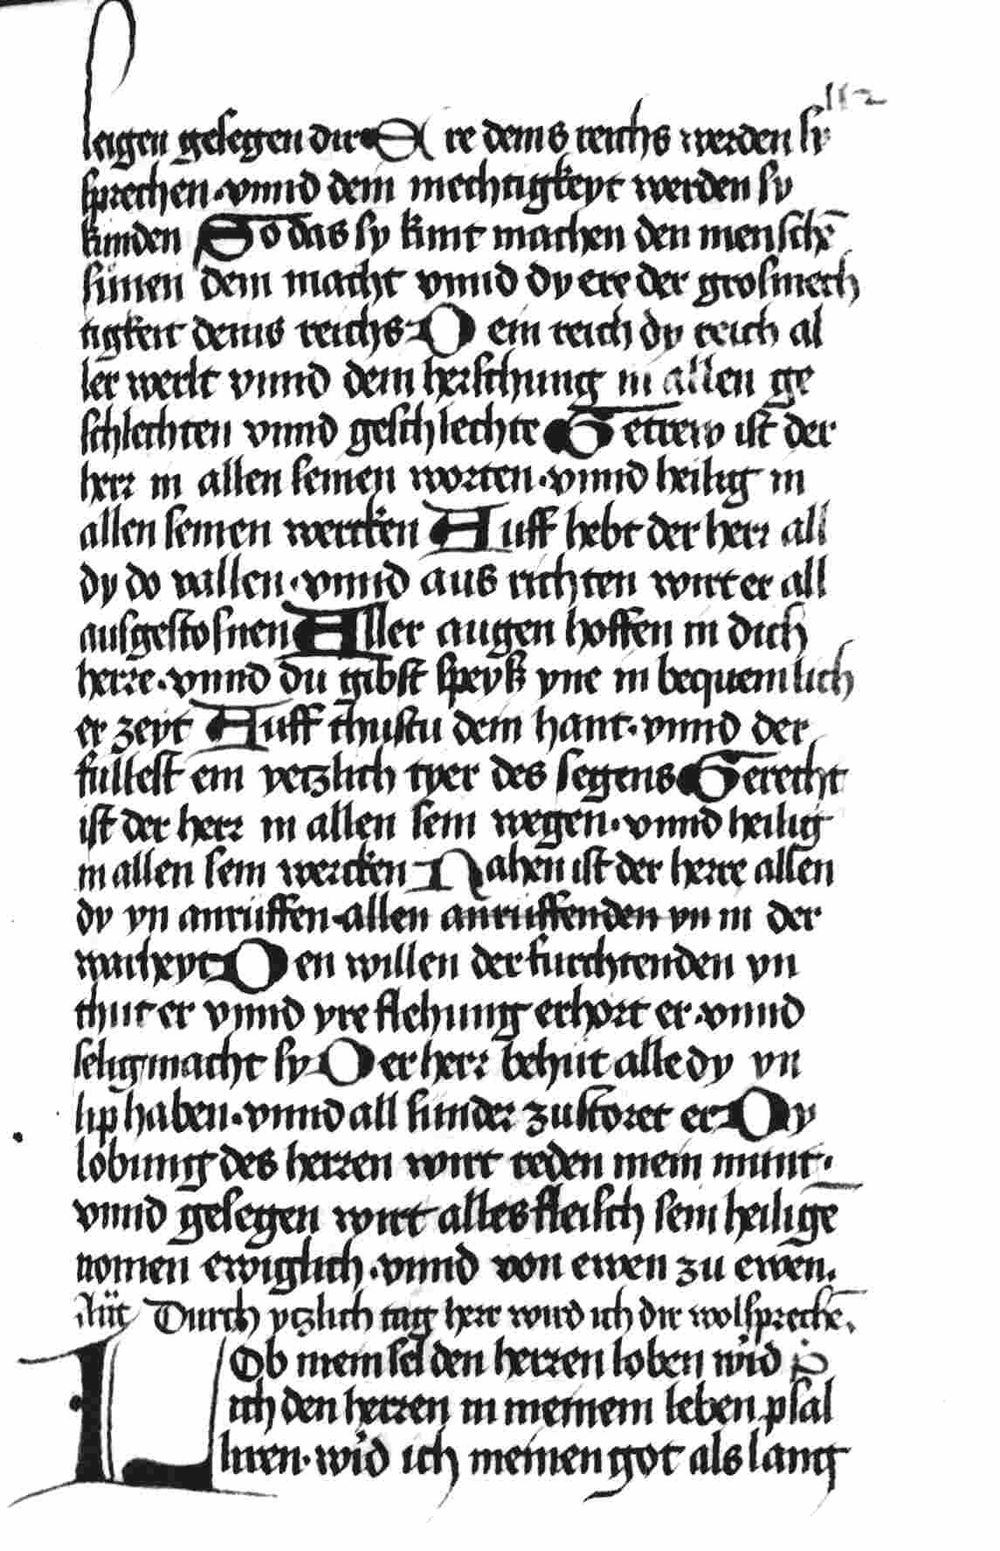 112
heigen gesegen dir Ere deins reichs werden sy
sprechen · vnnd dein mechtigkeyt werden sy
kunden So das sy kunt machen den menschē
sünen dein macht vnnd dy ere der grosmech
tigkeit deins reichs Dein reich dy reich al
ler werlt vnnd dein herschung in allen ge
schlechten vnnd geschlechte Getrew ist der
herr in allen seinen worten · vnnd heilig in
allen seinen wercken Auff hebt der herr all
dy do vallen · vnnd aus richten wirt er all
ausgestosnen Aller augen hoffen in dich
herre · vnnd du gibst speyß yne in bequemlich
er zeyt Auff thustu dein hant · vnnd der
fullest ein yetzlich tyer des segens Gerecht
ist der herr in allen sein wegen · vnnd heilig
in allen sein wercken Nahen ist der herre allen
dy yn anruffen · allen anruffenden yn in der
warheyt Den willen der furchtenden yn
thut er vnnd yre flehung erhort er · vnnd
selig macht sy Der herr behüt alle dy yn
lip haben · vnnd all sunder zustoret er Dy
lobung des herren wirt reden mein munt ·
vnnd gesegen wirt alles fleisch sein heilige
nomen ewiglich · vnnd von ewen zu ewen.
Durch ytzlich tag herr wird ich dir wolsprechē.
LOb mein sel den herren loben wid
ich den herren in meinem leben psal
liren · wid ich meinen got als lang